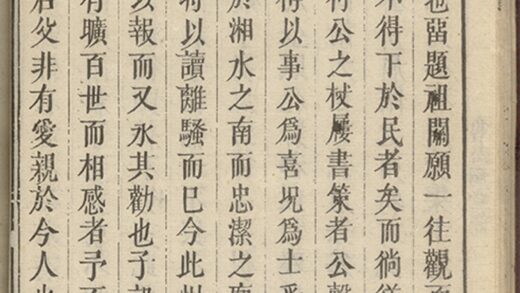 留題祖關願一往觀而
不得下於民者矣而徜徉
行公之杖屨書策者公
得以事公為喜况為士
於湘水之南而忠潔之
以讀離騷而已今此州
以報而又永其勸也子
有曠百世而相感者予不
君父非有愛親於今人